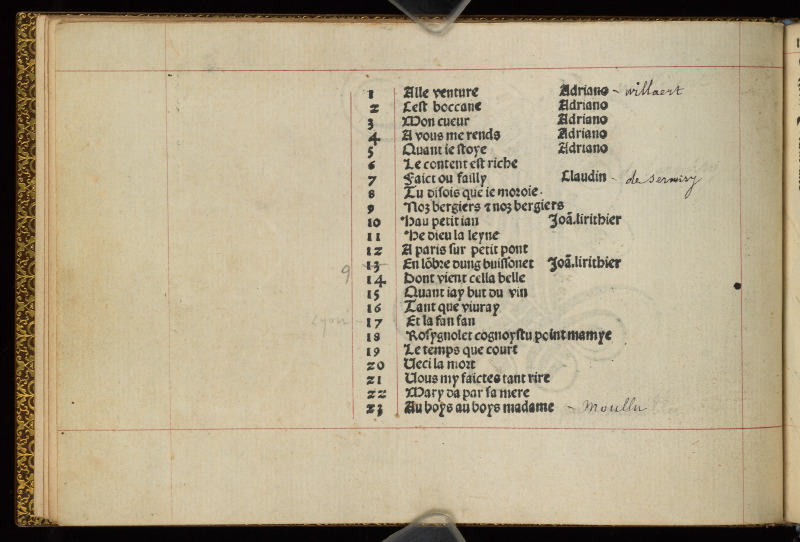 1 Alle venture Adriano - willaert
2 Cest boccane Adriano
3 Mon cueur Adriano
4 A vous me rends Adriano
5 Quant ie stoye Adriano
6 Le content est riche
7 Faict ou failly Claudin - de sermisy
8 Tu disois que ie moroie.
9 Noz bergiers ⁊ noz bergiers
10 Hau petit ian Joã.lirithier
11 He dieu la leyne
12 A paris sur petit pont
9 - 13 En lõbre dung buissonet Joã.lirithier
14 Dont vient cella belle
15 Quant iay but du vin
16 Tant que viuray
Lyon - 17 Et la fan fan
18 Rosygnolet cognoystu point mamye
19 Le temps que court
20 Veci la mort
21 Vous my faictes tant rire
22 Mary da par sa mere
23 Au boys au boys madame - Moullu